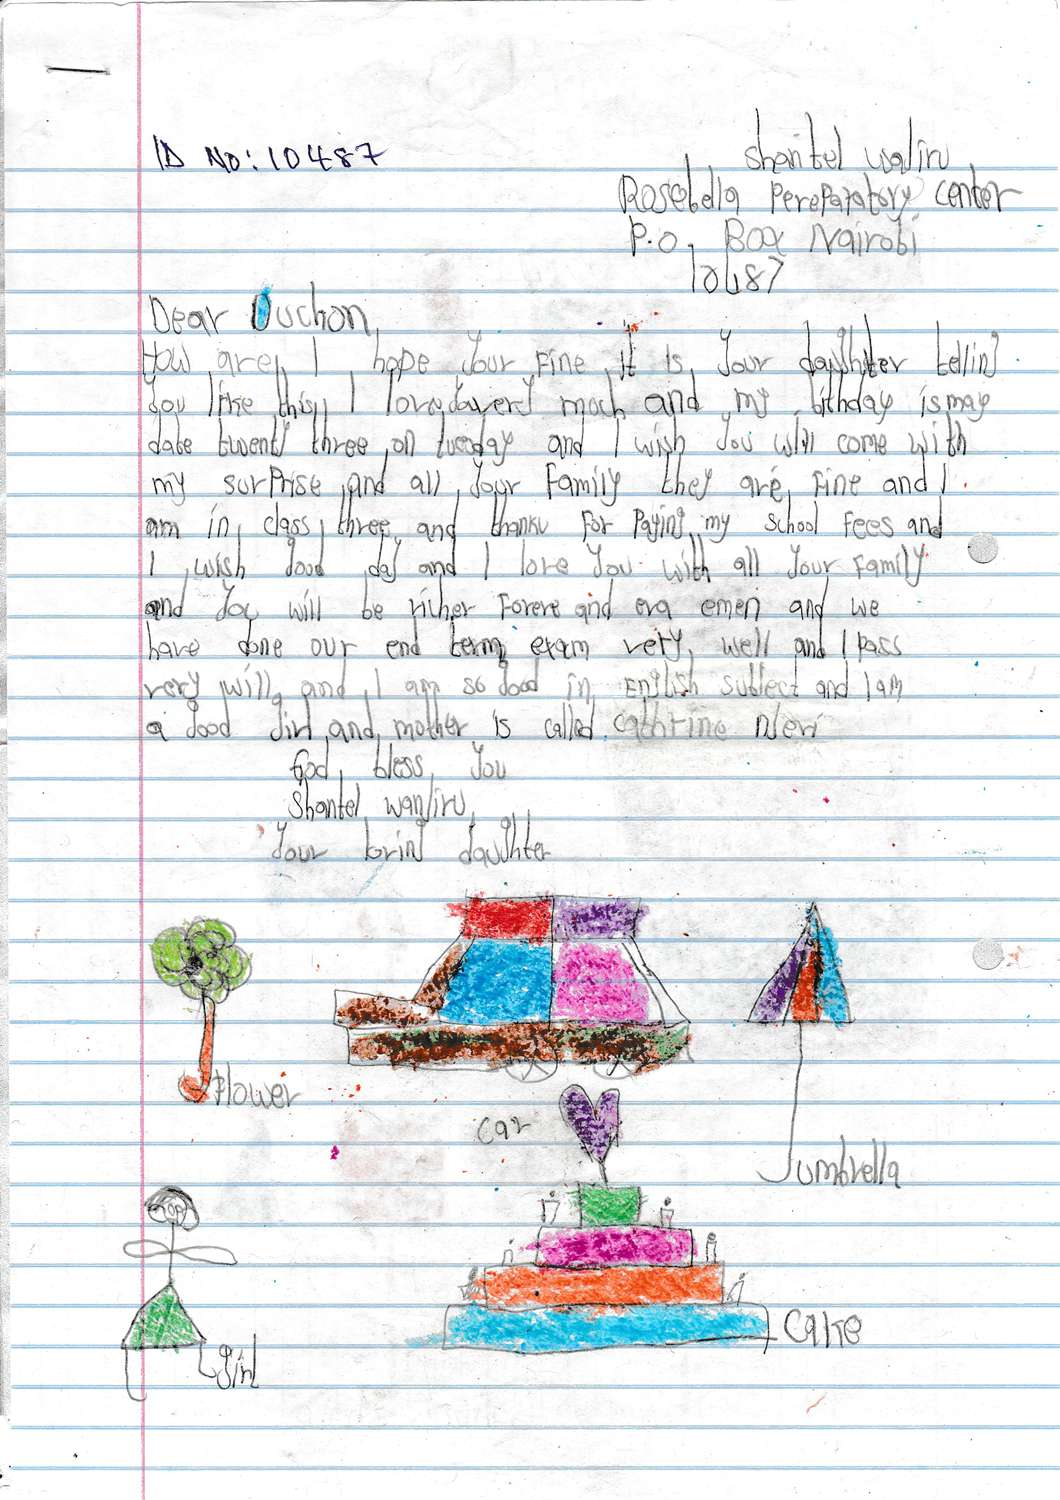 ID No: 10487
Shantel wanjiru
Rosebella Pereparatory center
P.o. Box Nairobi
10487
Dear Ouchon,
How are, I hope your fine it is your daughter telling
you like this, I love you very moch and my bithday is may
date twenty three on tuesday and I wish you will come with
my surprise and all your family they are fine and I
am in class three and thanku for paying my school fees and
I wish good day and I love you with all your family
and you will be richer forere and eva emen and we
have done our end term exam very well and I pass
very will and I am so good in English subject and I am
a good girl and mother is called Cathrine Njeri
God bless you
Shantel wanjiru
Your loring daughter
flower
car
umbrella
girl
cake